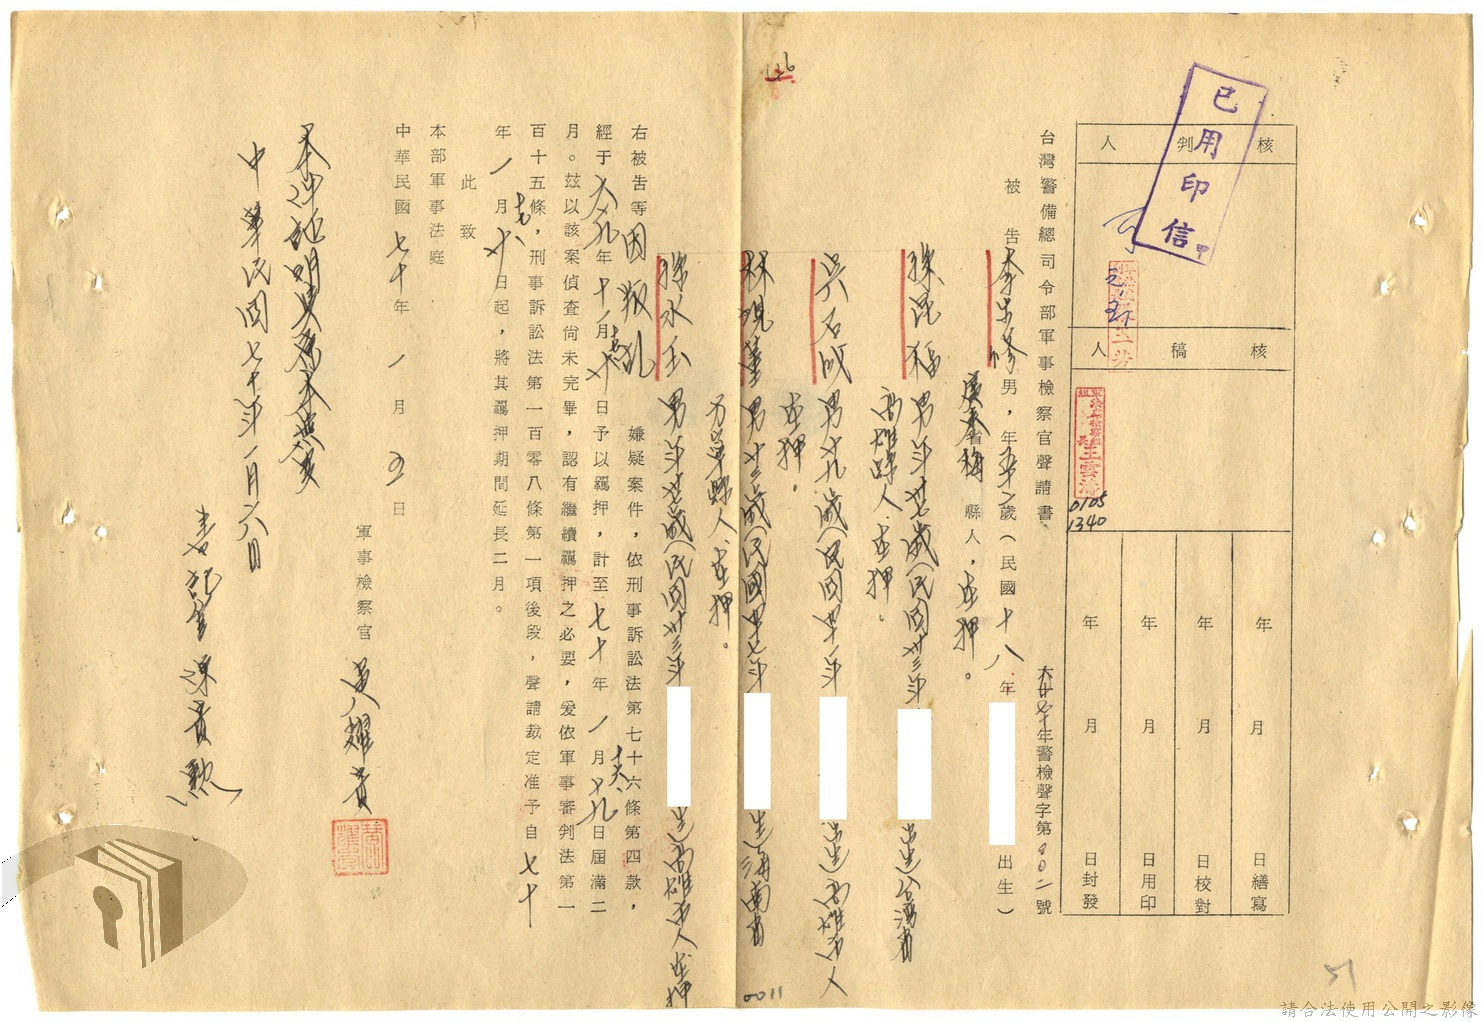 已用印信
核判人
核稿人
王雲濤
0105
1340
年月日繕寫
年月日校對
年月日用印
年月日封發
台灣警備總司令部軍事檢察官聲請書
年警檢聲字第002號
被告李
男,年五十二歲(民國十八年
出生)
廣東省梅縣人,在押。
福男年廿七歲(民國卅三年
台灣省
高雄縣人.在押。
吳石成男廿九歲(民國卌一年
高雄市人
在押。
林
男廿三歲(民國卌七年
生海南省
萬寧縣人.在押。
孫水玉男年廿七歲(民國卅三年
生高雄市人在押
右被告等因叛亂嫌疑案件,依刑事訴訟法第七十六條第四款,
經于六九年十一月
日予以羈押,計至七十年一月
日屆滿二
月。茲以該案偵查尚未完畢,認有繼續羈押之必要,爰依軍事審判法第一
百十五條,刑事訴訟法第一百零八條第一項後段,聲請裁定准予自七十
年一月
日起,將其羈押期間延長二月。
此致
本部軍事法庭
中華民國七十年一月五日
軍事檢察官
吳耀貴
本
證明與原本無異
中華民國七十年一月六日
書記官
116
0011
51
請合法使用公開之影像